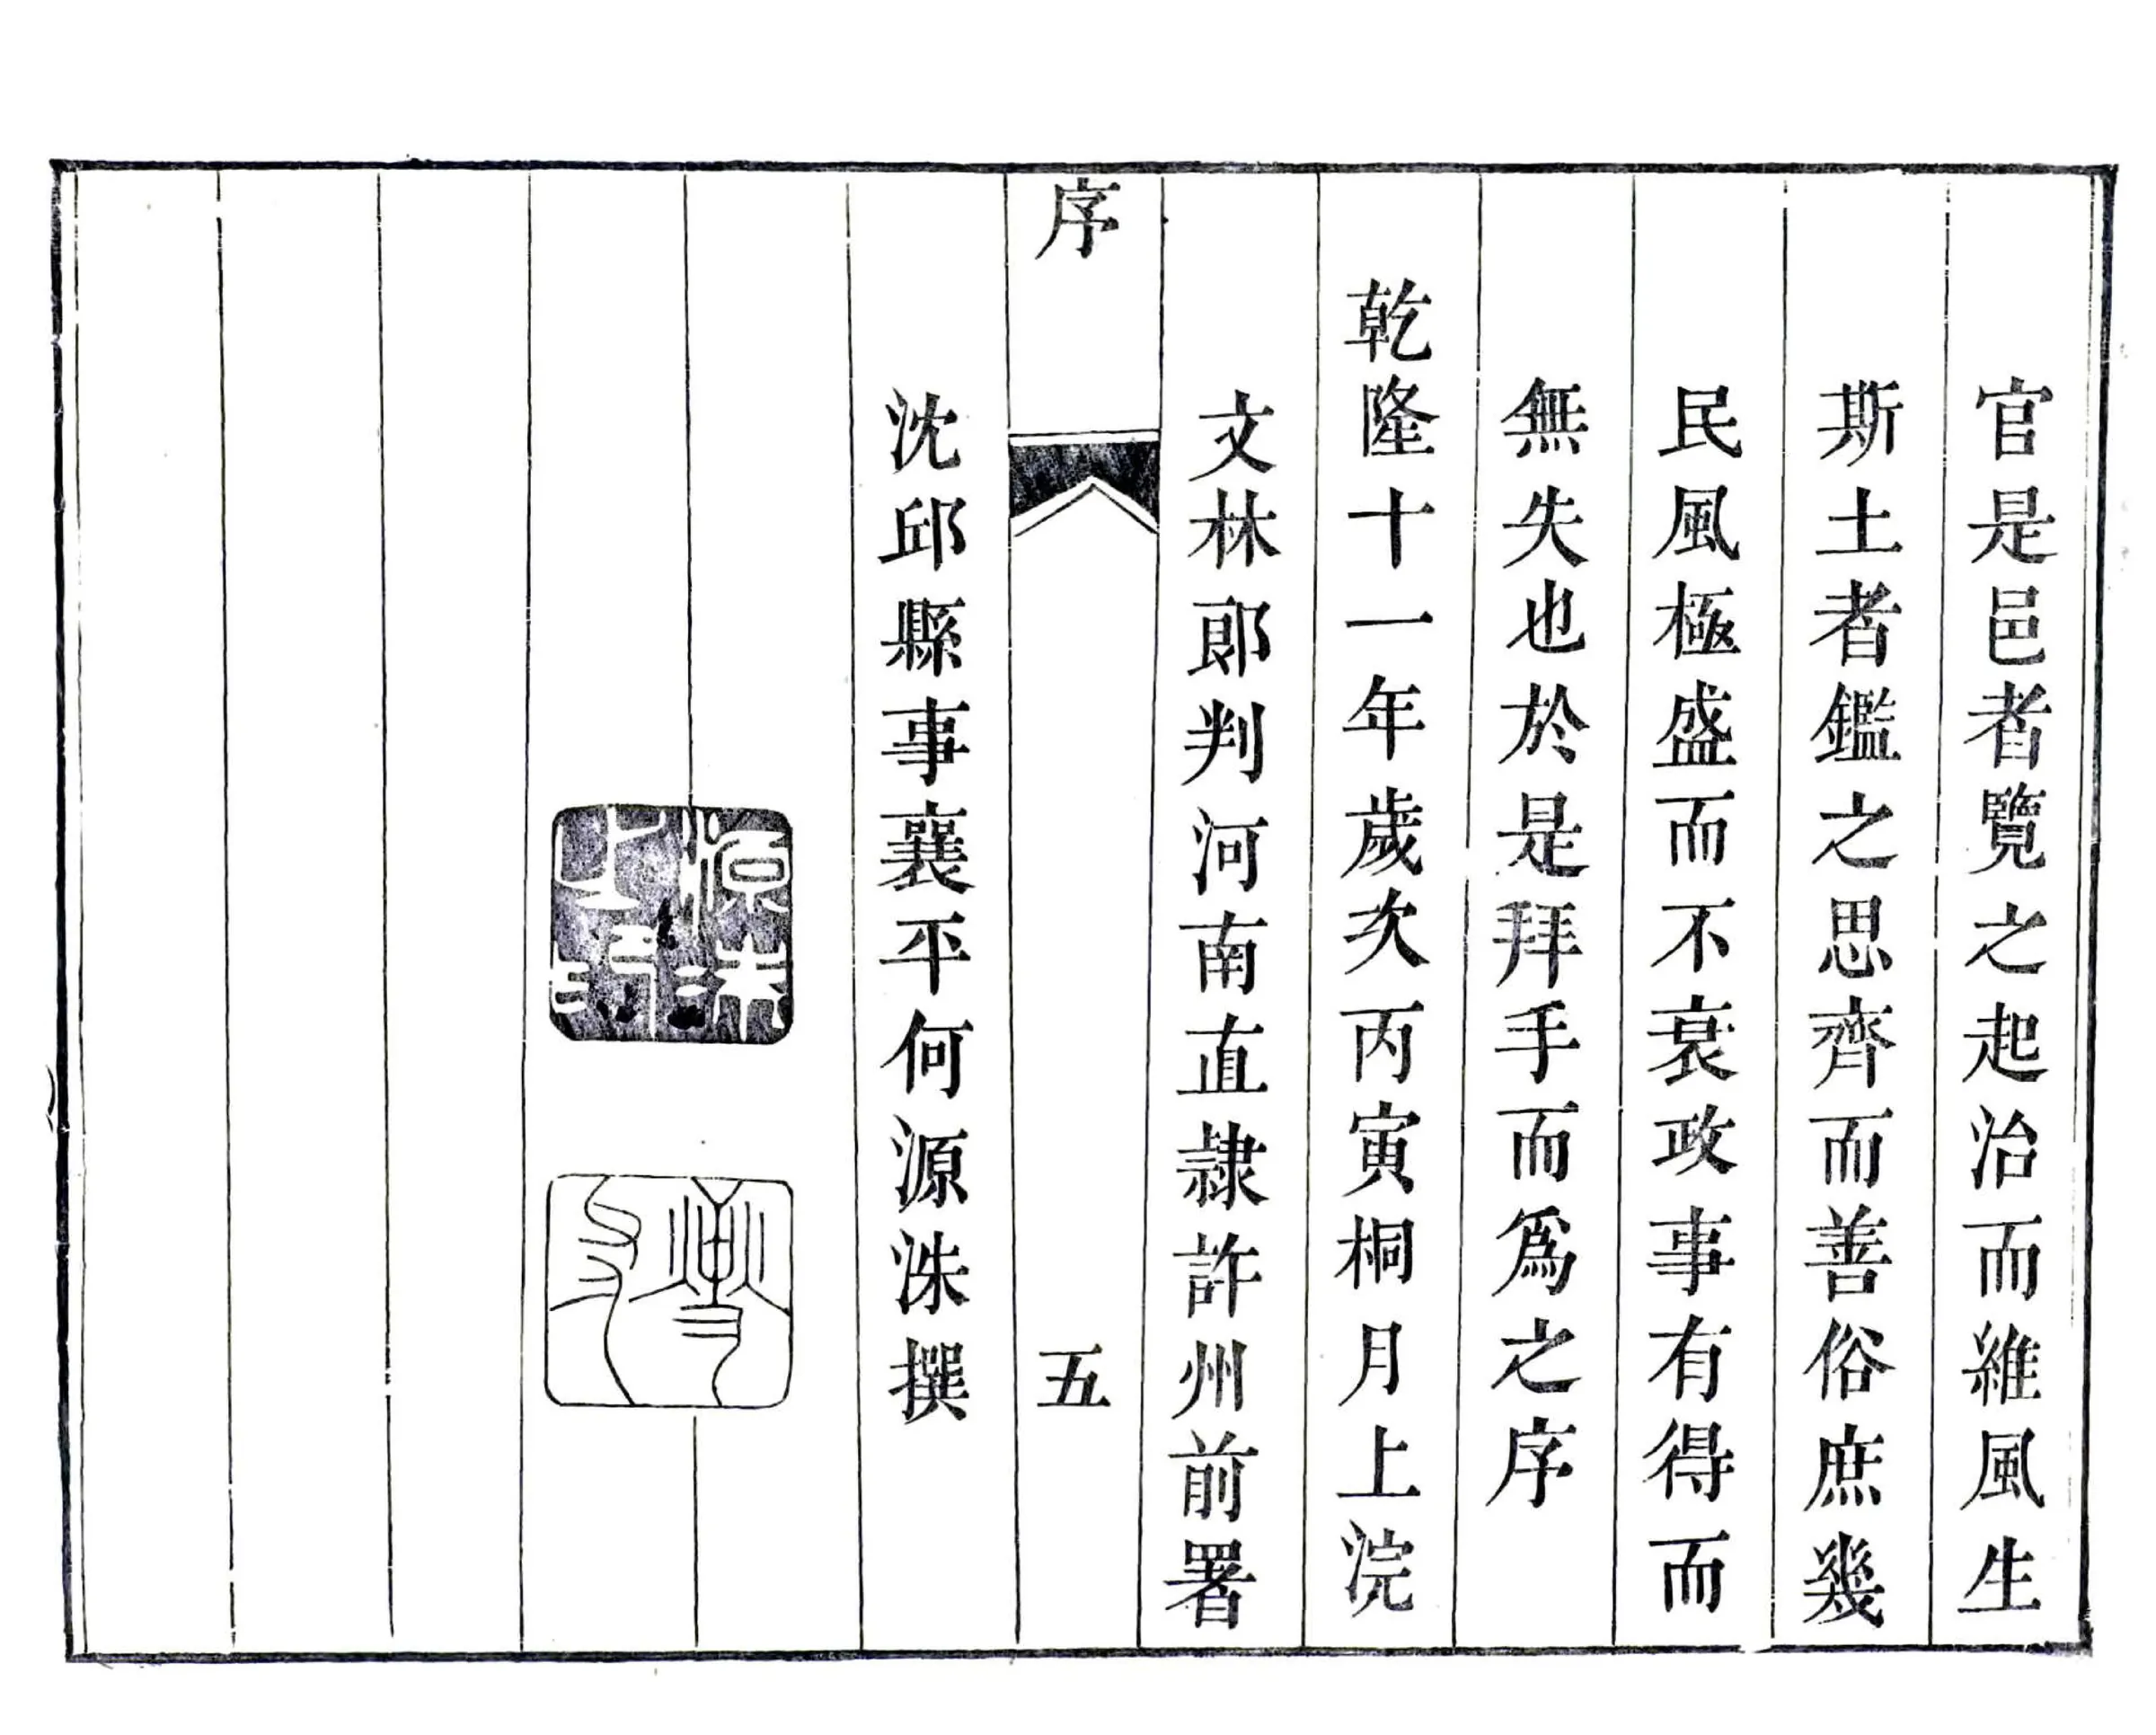 官是邑者覽之起治而維風生
斯土者鑑之思齊而善俗庶幾
民風極盛而不衰政事有得而
無失也於是拜手而爲之序
乾隆十一年歲次丙寅桐月上浣
文林郎判河南直隷許州前署
序
五
沈邱縣事襄平何源洙撰
源洙之印